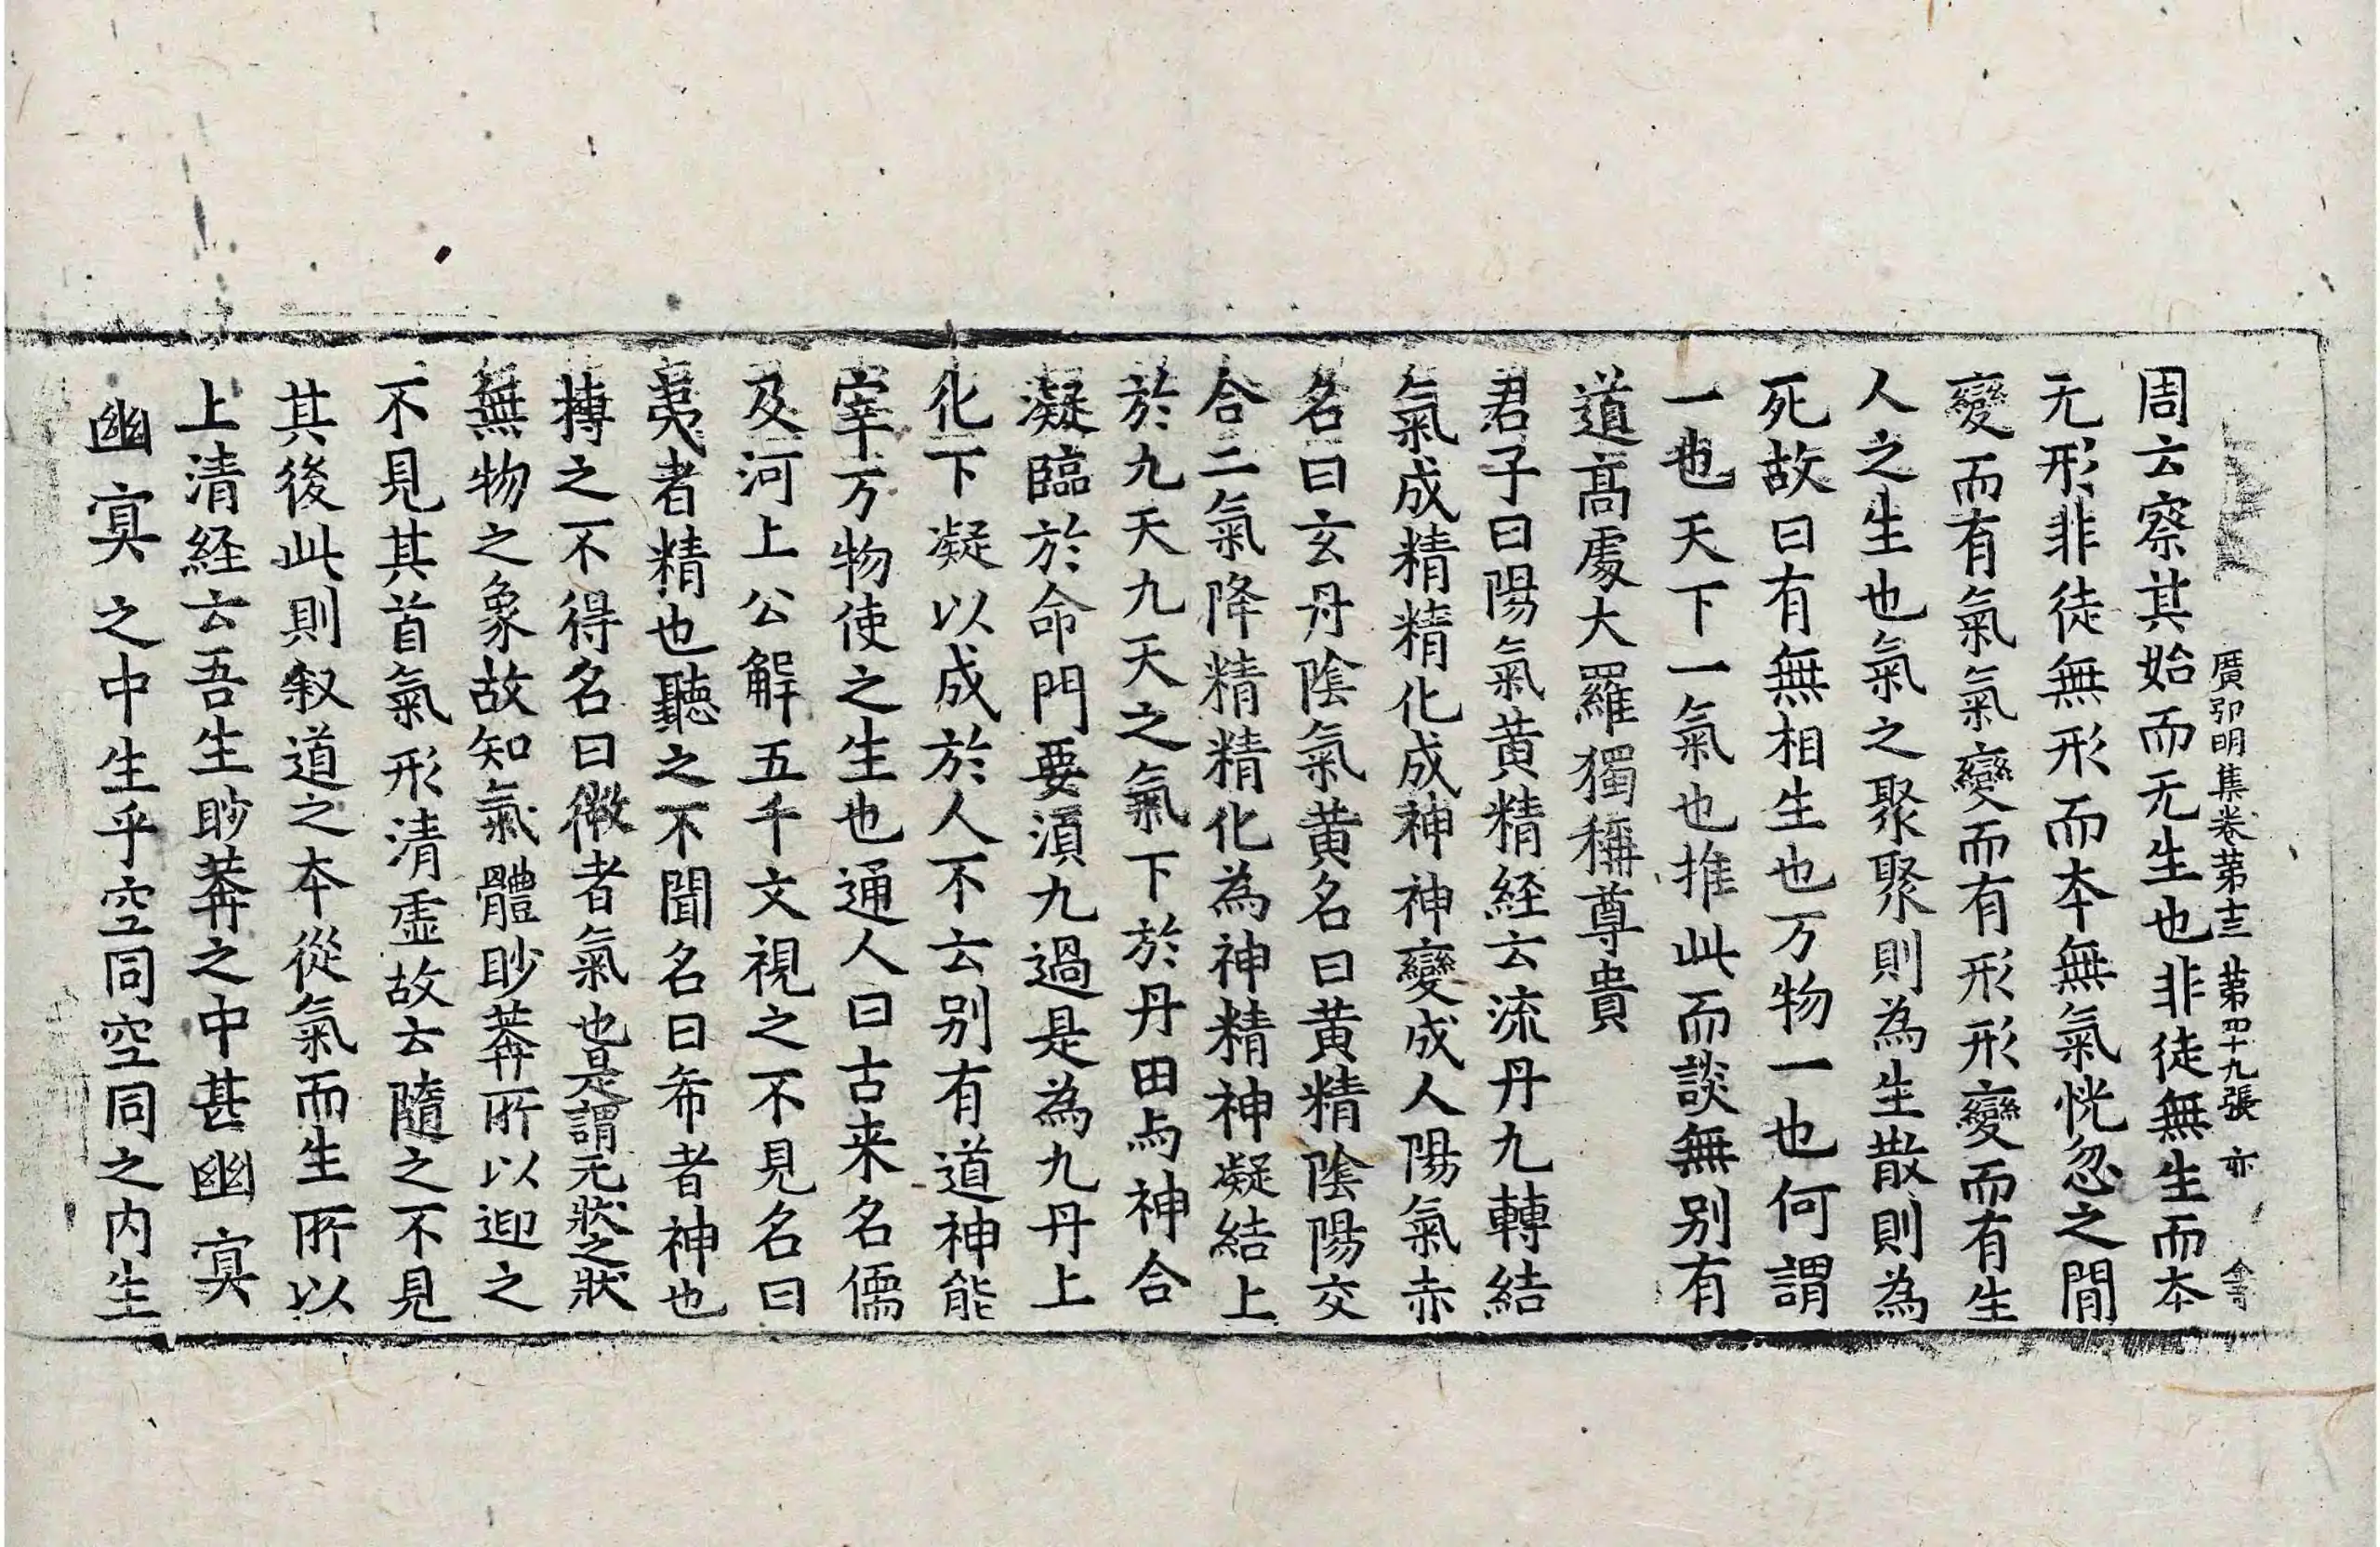 廣弘明集卷第十三 第四十九張 亦
周云察其始而无生也非徒無生而本
无形非徒無形而本無氣恍忽之間
變而有氣氣變而有形形變而有生
人之生也氣之聚聚則為生散則為
死故曰有無相生也万物一也何謂
一也天下一氣也推此而談無別有
道高處大羅獨稱尊貴
君子曰陽氣黃精経云流丹九轉結
氣成精精化成神神變成人陽氣赤
名曰玄丹陰氣黃名曰黃精陰陽交
合二氣降精精化為神精神凝結上
於九天九天之氣下於丹田与神合
凝臨於命門要湏九過是為九丹上
化下凝以成於人不云別有道神能
宰万物使之生也通人曰古来名儒
及河上公解五千文視之不見名曰
夷者精也聽之不聞名曰希者神也
摶之不得名曰微者氣也是謂无狀之狀
無物之象故知氣體眇莽所以迎之
不見其首氣形清虛故云隨之不見
其後此則叙道之本從氣而生所以
上清経云吾生眇莽之中甚幽冥
幽冥之中生乎空同空同之内生